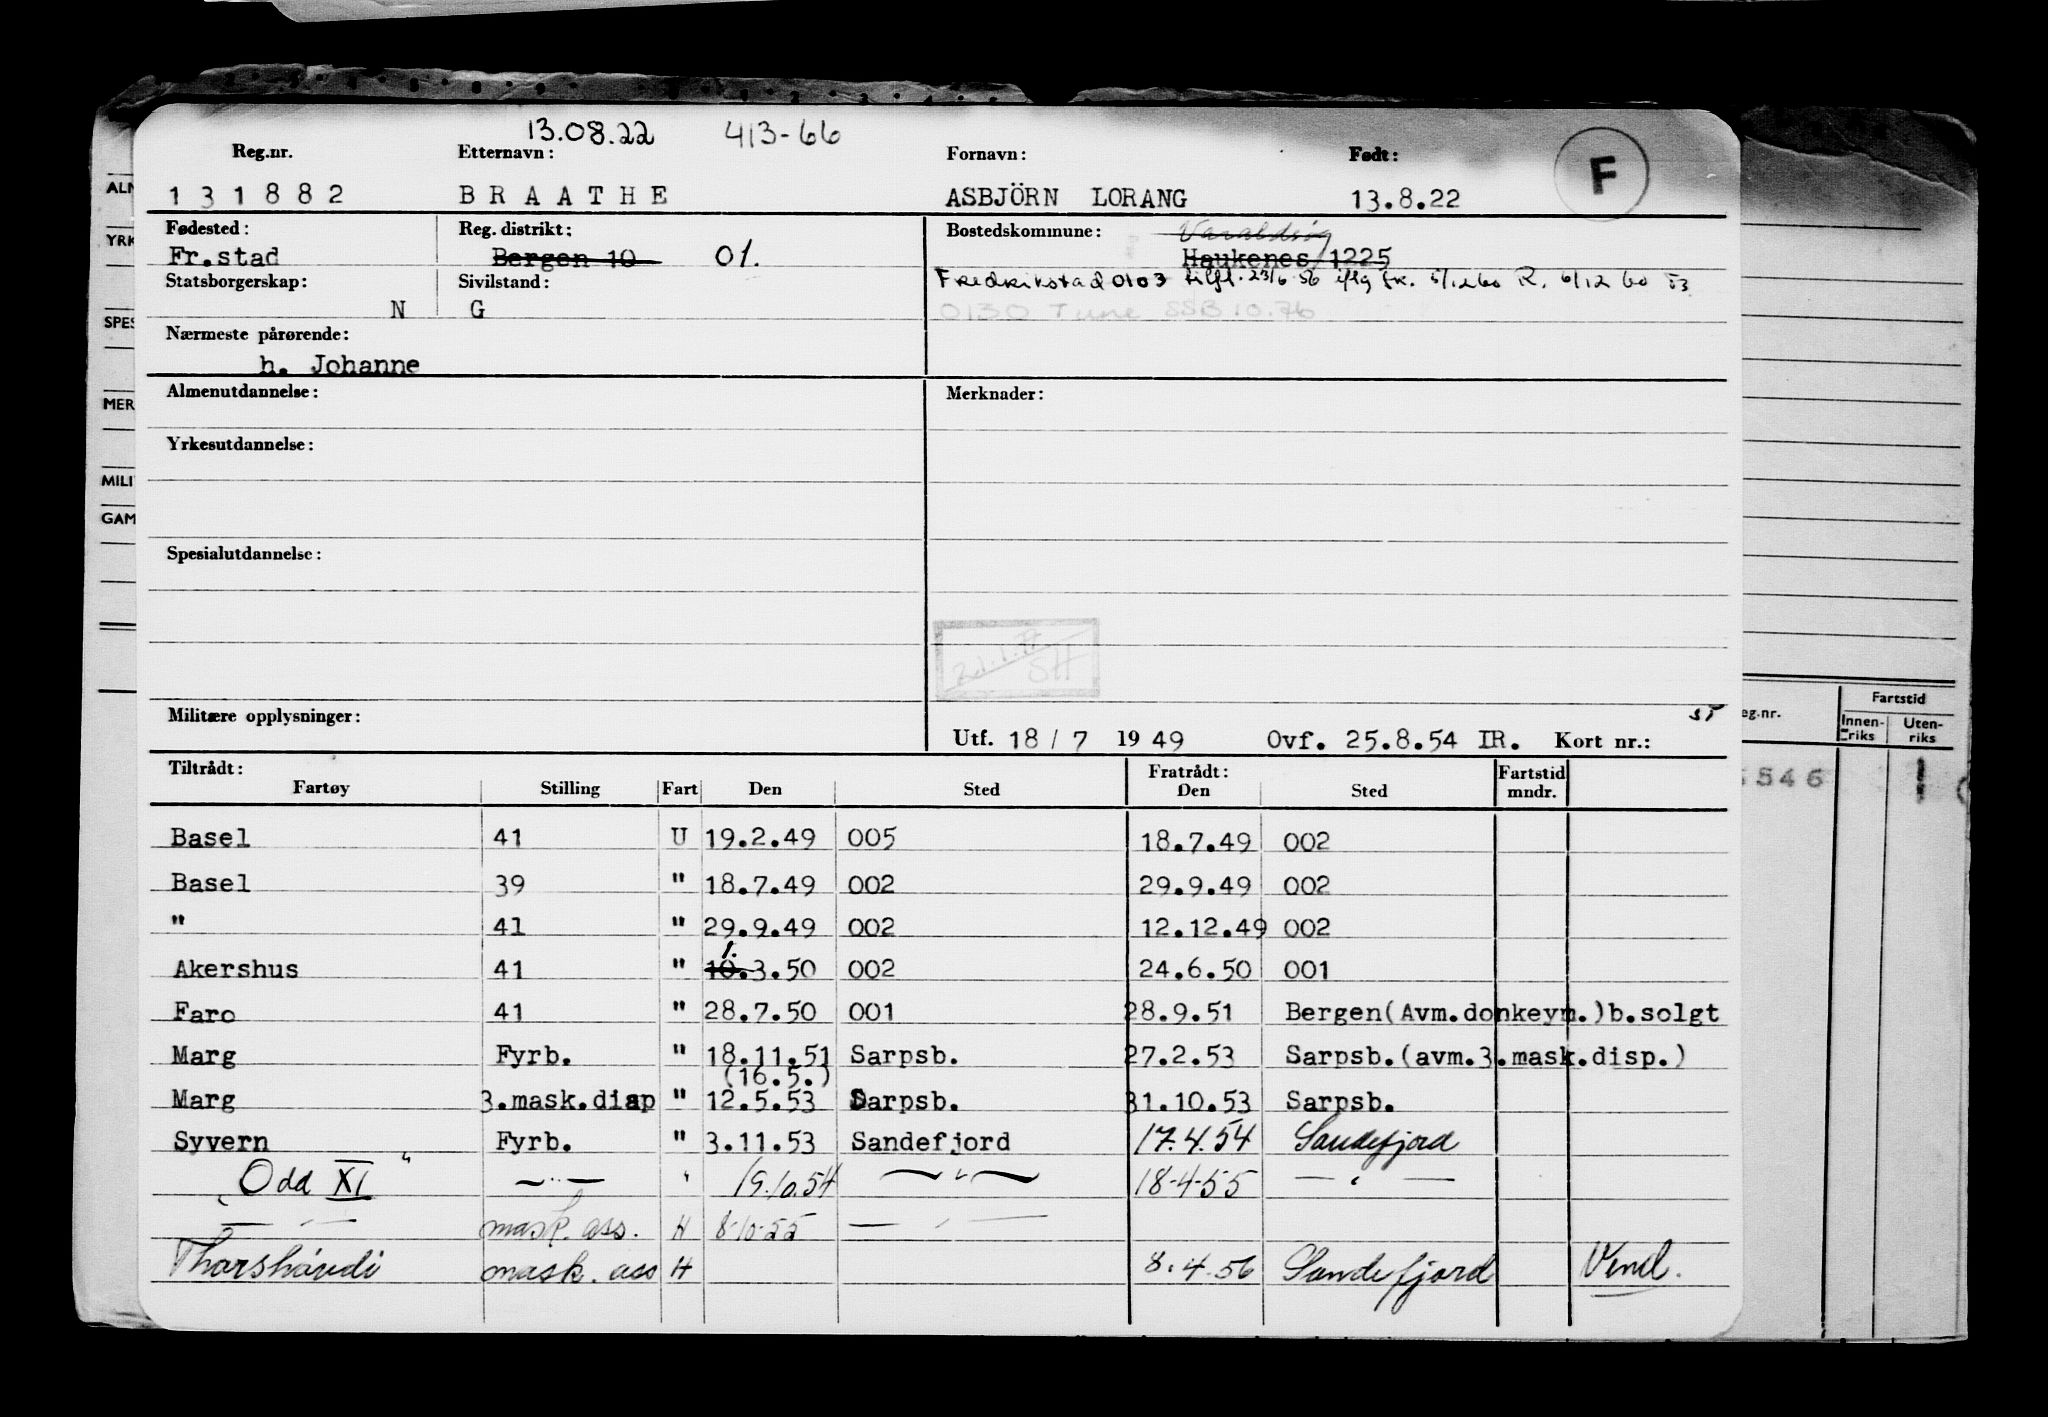 13.08.22 413-66
Reg.nr. Etternavn: Fornavn: Født: F
131882 BRAATHE ASBJÖRN LORANG 13.8.22
Fødested: Reg. distrikt: Bostedskommune: Varaldsøy
Fr.stad Bergen 10 01. Haukenes/1225
Statsborgerskap: Sivilstand: Fredrikstad 0103 tilfl. 23/6-56 iflg sk. 5/12 60 R. 6/12 60
N G 0130 Tune SSB 10.76
Nærmeste pårørende:
h. Johanne
Almenutdannelse: Merknader:
Yrkesutdannelse:
Spesialutdannelse:
SH
Militære opplysninger:
Utf. 18 / 7 19 49 Ovf. 25.8.54 IR. Kort nr.:
Tiltrådt: Fratrådt: Fartstid
Fartøy Stilling Fart Den Sted Den Sted mndr.
Basel 41 U 19.2.49 005 18.7.49 002
Basel 39 " 18.7.49 002 29.9.49 002
" 41 " 29.9.49 002 12.12.49 002
1.
Akershus 41 " 10.3.50 002 24.6.50 001
Faro 41 " 28.7.50 001 28.9.51 Bergen(Avm.donkeym.)b.solgt
Marg Fyrb. " 18.11.51 Sarpsb. 27.2.53 Sarpsb.(avm.3.mask.disp.)
(16.5.)
Marg 3.mask.disp " 12.5.53 Sarpsb. 31.10.53 Sarpsb.
Syvern Fyrb. " 3.11.53 Sandefjord 17.4.54 Sandefjord
Odd XI " — " — " 19.10.54 — " — 18-4-55 — " —
— " — mask. ass. H 8-10-55 — " —
Thorshövdi mask. ass H 8.4.56 Sandefjord Vend.
ALM
YRK
SPES
MER
MILI
GAM
eg.nr. Fartstid
Innen-riks Uten-riks
546 1